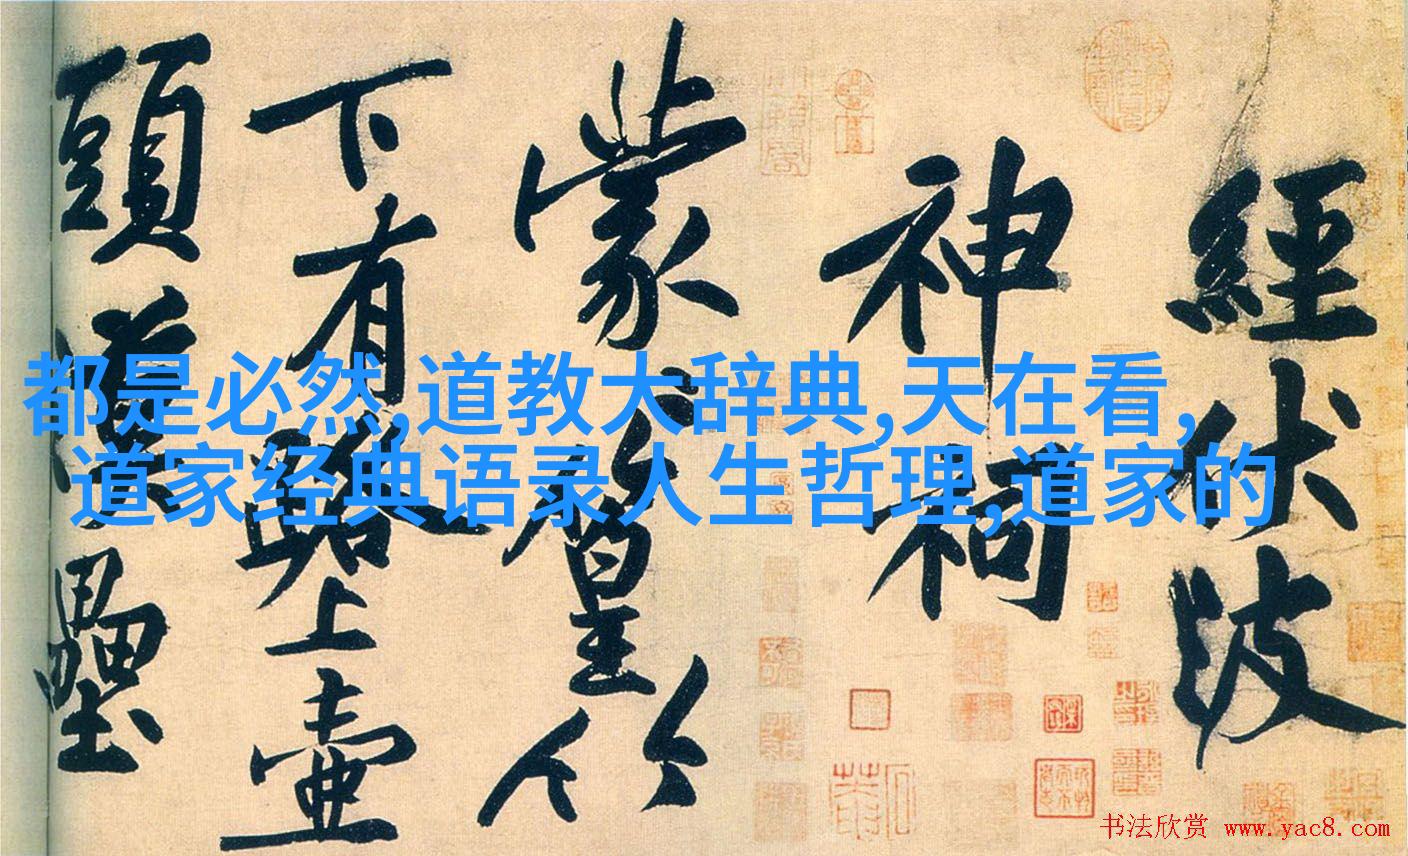 都是必然,道教大辞典,天在看,
道家经典语录人生哲理,道家的
經伏波
神祠
蒙〻篁竹
下有路上壺
頭漢壘
书法欣赏 www.yac8.com